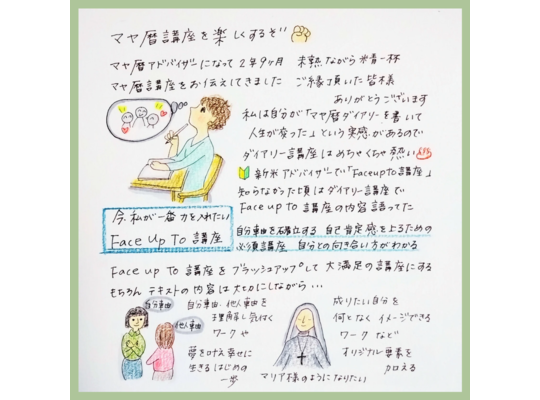 マヤ暦講座を楽しくするぞ✊
マヤ暦アドバイザーになって2年9ヶ月 未熟ながら精一杯
マヤ暦講座をお伝えしてきました ご縁頂いた皆様
ありがとうございます
私は自分が「マヤ暦ダイアリーを書いて
人生が変った」という実感があるので
ダイアリー講座はめちゃくちゃ熱い♨
🔰新米アドバイザーで「Face up to 講座」
知らなかった頃はダイアリー講座で
Face up to 講座の内容語ってた
今、私が一番力を入れたい
Face Up To 講座
自分軸を確立する 自己肯定感を上るための
必須講座 自分との向き合い方がわかる
Face up to 講座をブラッシュアップして大満足の講座にする
もちろんテキストの内容は大切にしながら…
自分軸
他人軸
自分軸、他人軸を
理解し気付く
ワークや
夢を叶え幸せに
生きるはじめの
一歩
マリア様のようになりたい
成りたい自分を
何となくイメージできる
ワークなど
オリジナル要素を
加える